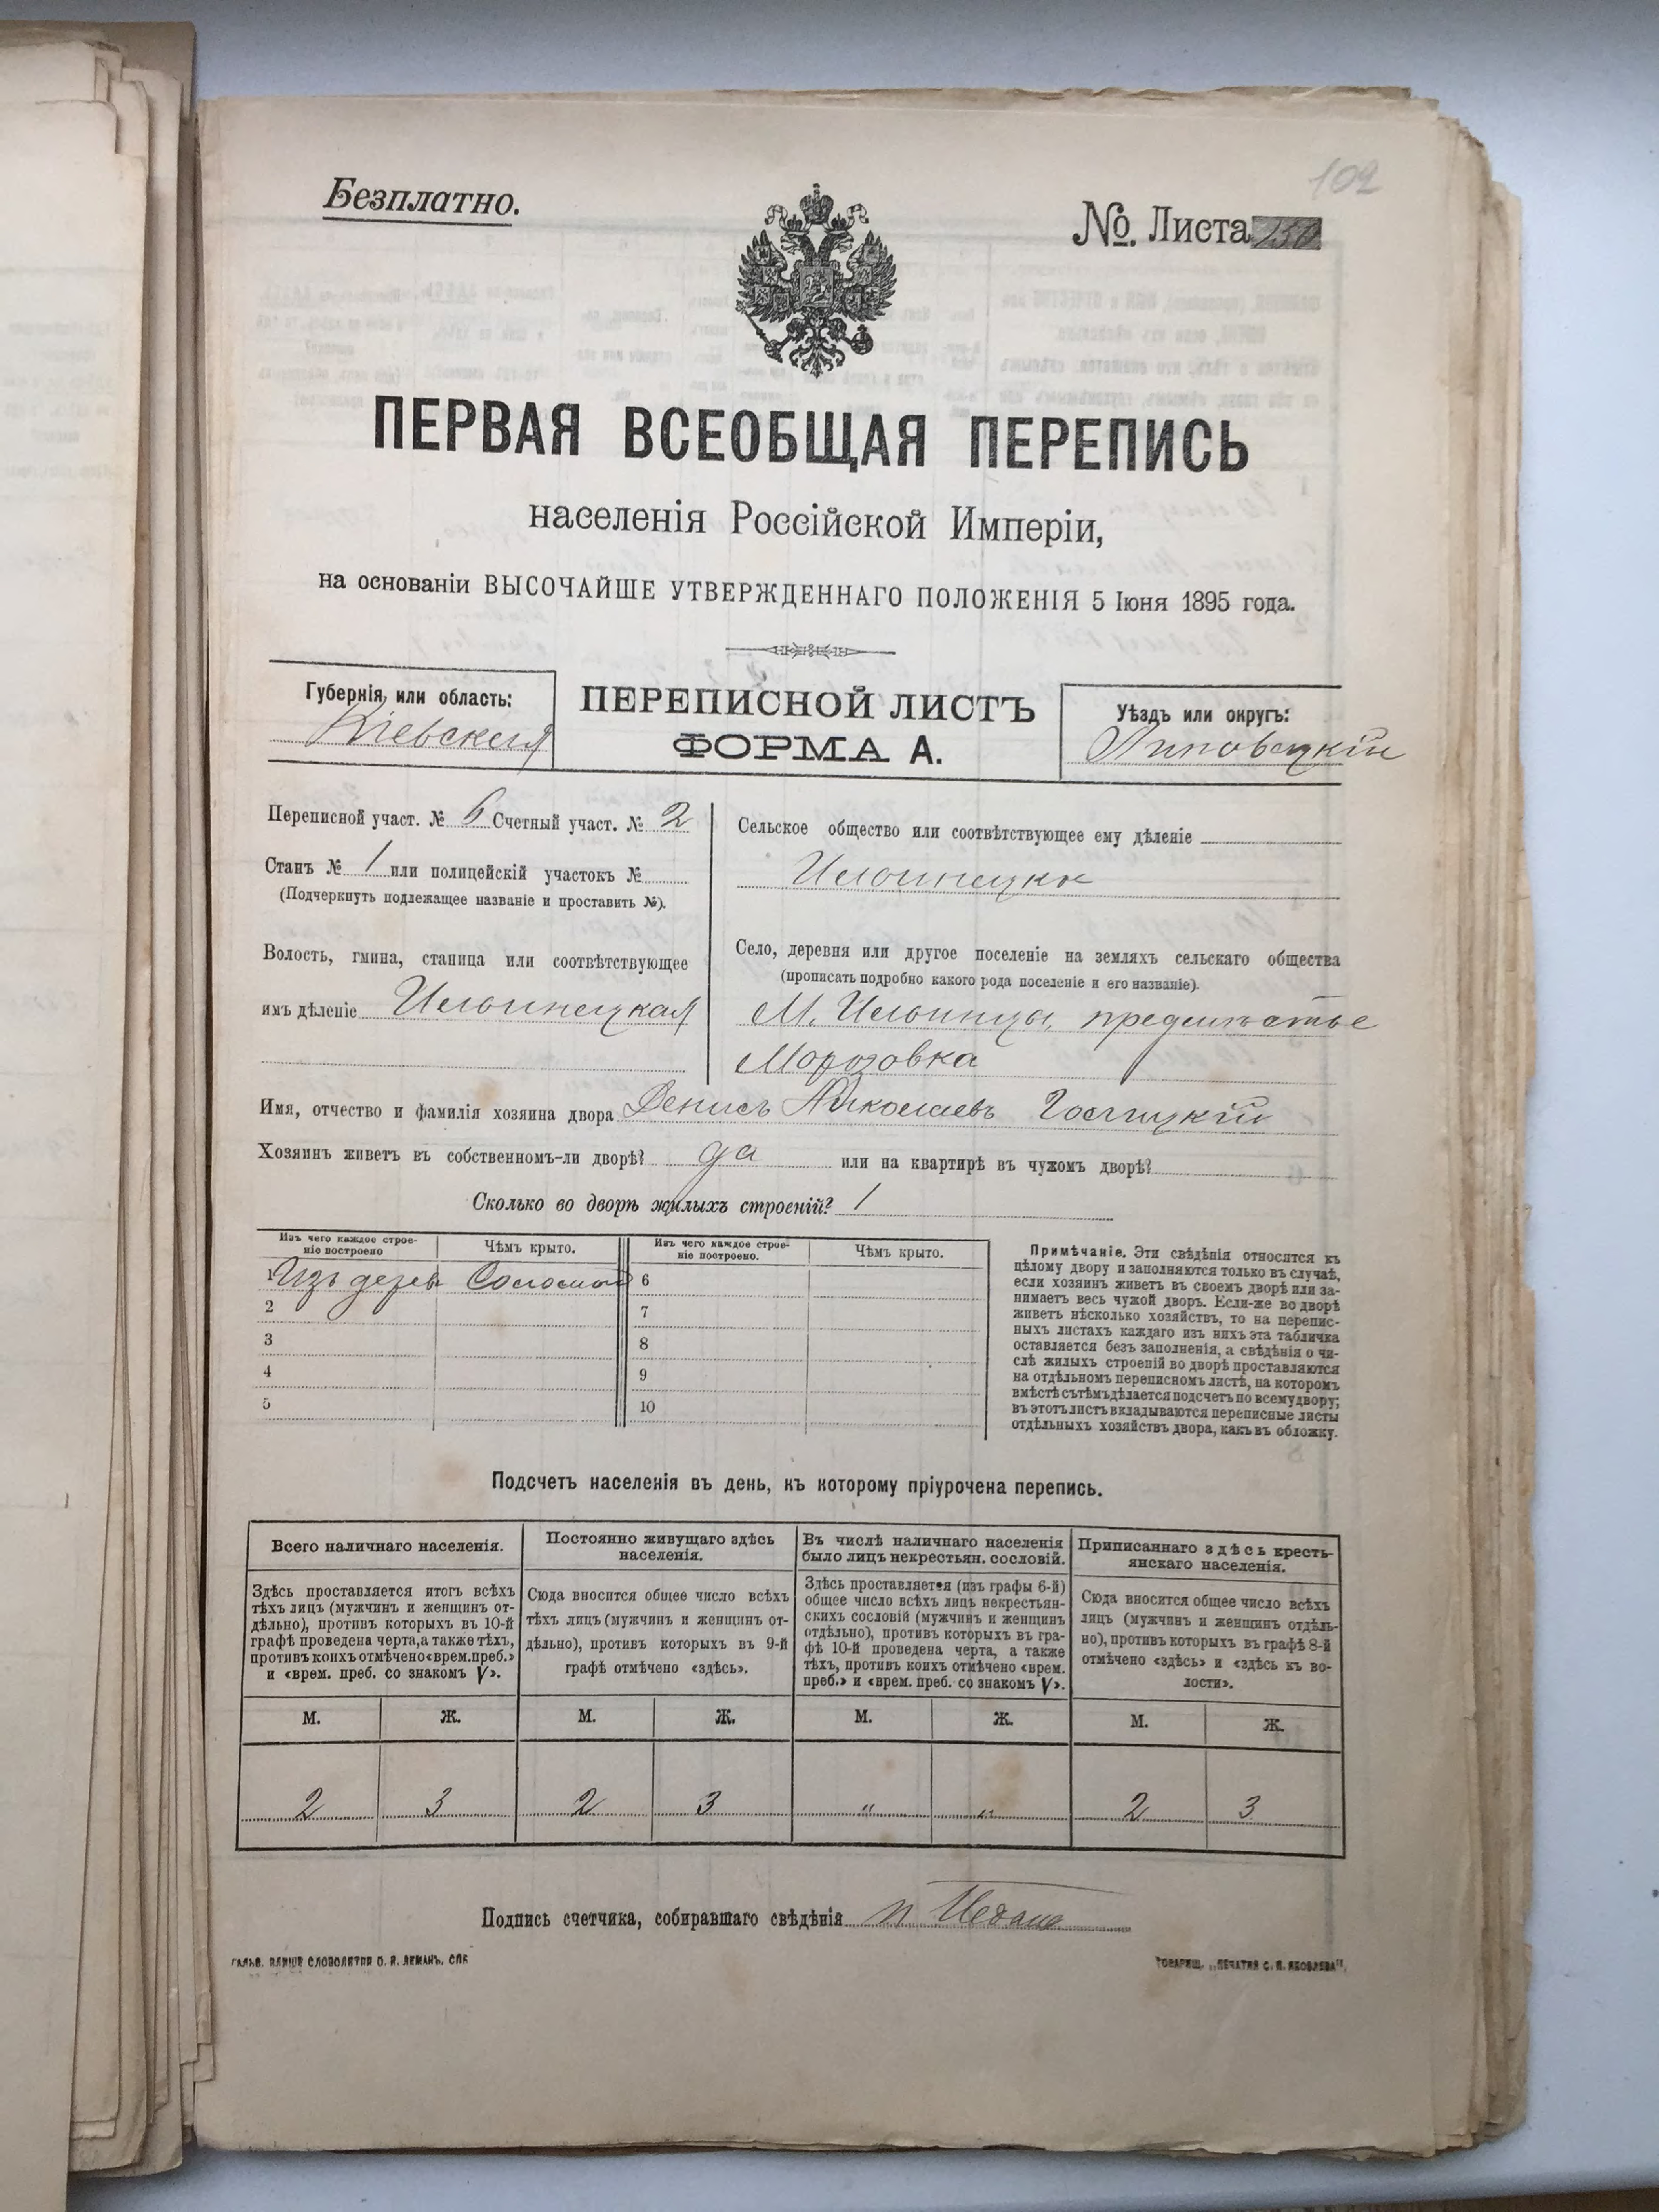 102
Безплатно.
№. Листа 250
ПЕРВАЯ ВСЕОБЩАЯ ПЕРЕПИСЬ
населенія Россійской Имперіи,
на основаніи ВЫСОЧАЙШЕ УТВЕРЖДЕННАГО ПОЛОЖЕНІЯ 5 Іюня 1895 года.
Губернія, или область:
Кіевская
ПЕРЕПИСНОЙ ЛИСТЪ
ФОРМА А.
Уѣздъ или округъ:
Липовецкій
Переписной участ. № 6 Счетный участ. № 2
Станъ № 1 или полицейскій участокъ №
(Подчеркнуть подлежащее названіе и проставить №).
Волость, гмина, станица или соотвѣтствующее
имъ дѣленіе Ильинецкая
Сельское общество или соотвѣтствующее ему дѣленіе
Село, деревня или другое поселеніе на земляхъ сельскаго общества
(прописать подробно какого рода поселеніе и его названіе).
М. Ильинцы, предмѣстье
Морозовка
Имя, отчество и фамилія хозяина двора Денисъ Николаевъ
Хозяинъ живетъ въ собственномъ-ли дворѣ? да или на квартирѣ въ чужомъ дворѣ?
Сколько во дворѣ жилыхъ строеній? 1
Изъ чего каждое строе-
ніе построено
Чѣмъ крыто.
Изъ чего каждое строе-
ніе построено.
Чѣмъ крыто.
1 Изъ дерев Соломой 6
2 7
3 8
4 9
5 10
Примѣчаніе. Эти свѣдѣнія относятся къ
цѣлому двору и заполняются только въ случаѣ,
если хозяинъ живетъ въ своемъ дворѣ или за-
нимаетъ весь чужой дворъ. Если-же во дворѣ
живетъ нѣсколько хозяйствъ, то на перепис-
ныхъ листахъ каждаго изъ нихъ эта табличка
оставляется безъ заполненія, а свѣдѣнія о чи-
слѣ жилыхъ строеній во дворѣ проставляются
на отдѣльномъ переписномъ листѣ, на которомъ
вмѣстѣ съ тѣмъ дѣлается подсчетъ по всему двору;
въ этотъ листъ вкладываются переписные листы
отдѣльныхъ хозяйствъ двора, какъ въ обложку.
Подсчетъ населенія въ день, къ которому пріурочена перепись.
Всего наличнаго населенія.
Здѣсь проставляется итогъ всѣхъ
тѣхъ лицъ (мужчинъ и женщинъ от-
дѣльно), противъ которыхъ въ 10-й
графѣ проведена черта, а также тѣхъ,
противъ коихъ отмѣчено «врем. преб.»
и «врем. преб. со знакомъ V».
Постоянно живущаго здѣсь
населенія.
Сюда вносится общее число всѣхъ
тѣхъ лицъ (мужчинъ и женщинъ от-
дѣльно), противъ которыхъ въ 9-й
графѣ отмѣчено «здѣсь».
Въ числѣ наличнаго населенія
было лицъ некрестьян. сословій.
Здѣсь проставляется (изъ графы 6-й)
общее число всѣхъ лицъ некрестьян-
скихъ сословій (мужчинъ и женщинъ
отдѣльно), противъ которыхъ въ гра-
фѣ 10-й проведена черта, а также
тѣхъ, противъ коихъ отмѣчено «врем.
преб.» и «врем. преб. со знакомъ V».
Приписаннаго здѣсь кресть-
янскаго населенія.
Сюда вносится общее число всѣхъ
лицъ (мужчинъ и женщинъ отдѣль-
но), противъ которыхъ въ графѣ 8-й
отмѣчено «здѣсь» и «здѣсь къ во-
лости».
М. Ж. М. Ж. М. Ж. М. Ж.
2 3 2 3 „ „ 2 3
Подпись счетчика, собиравшаго свѣдѣнія
ГАЛЬВ. КЛИШЕ СЛОВОЛИТНИ О. И. ЛЕМАНЪ, СПБ
ТОВАРИЩ. „ПЕЧАТНЯ С. П. ЯКОВЛЕВА“.